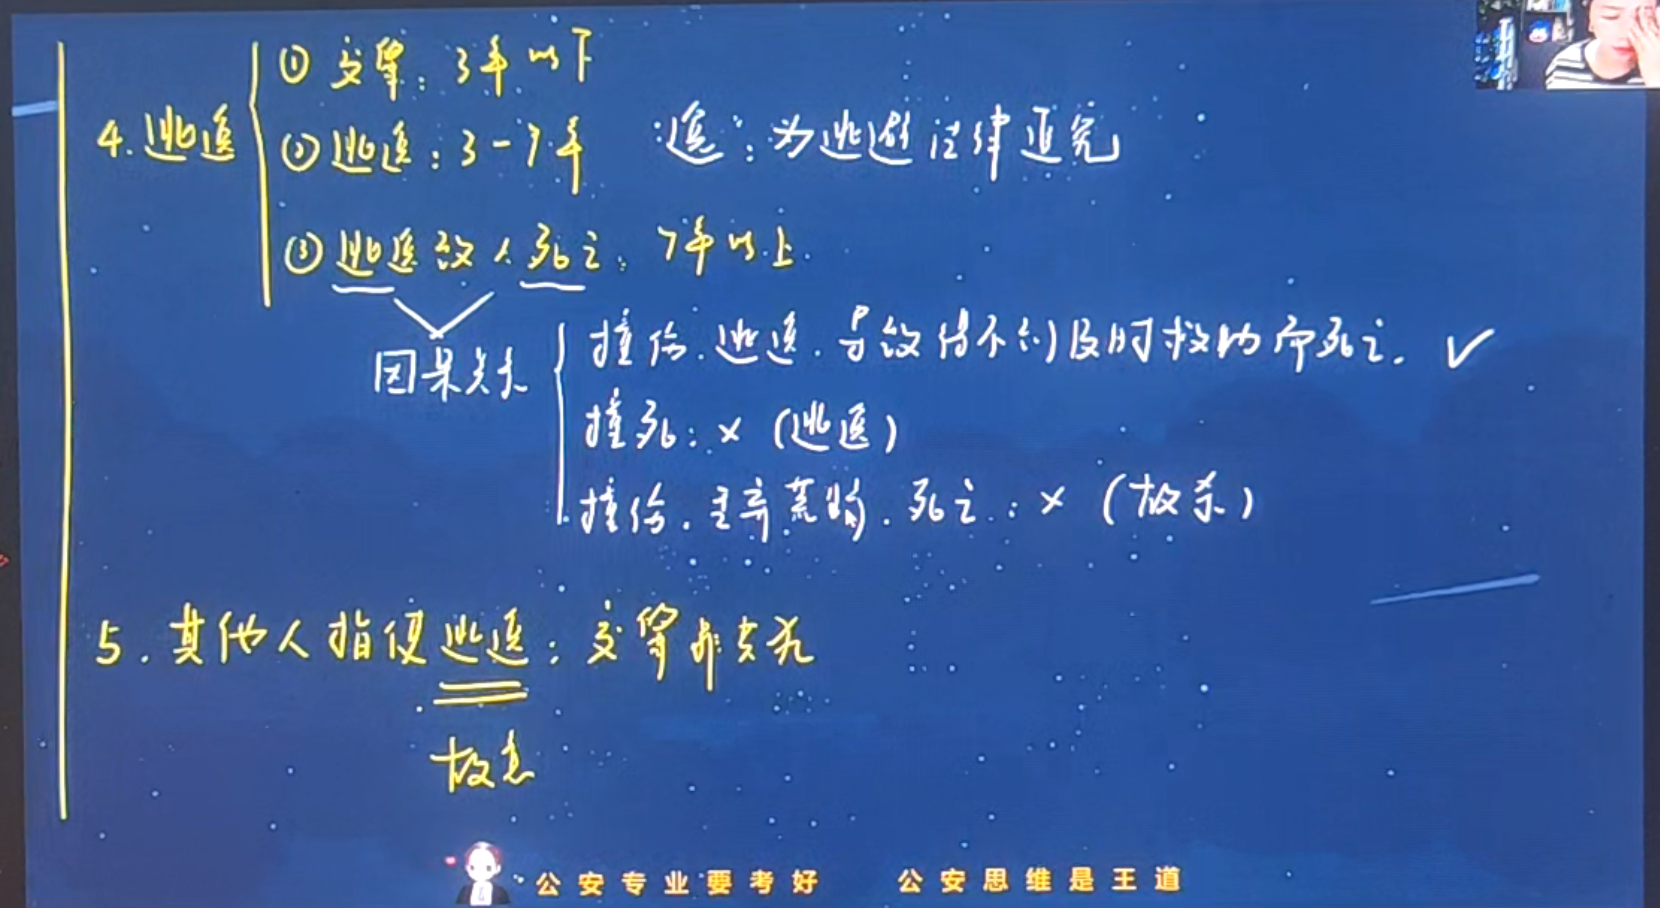 4.逃逸
① 交肇：3年以下
② 逃逸：3-7年 "逸"：为逃避法律追究
③ 逃逸致人死亡：7年以上.
因果关系
撞伤.逃逸.导致得不到及时救助而死亡. ✓
撞死：× (逃逸)
撞伤.丢弃荒郊.死亡.：× (故杀)
5.其他人指使逃逸：交肇非共犯
故意
公安专业要考好 公安思维是王道